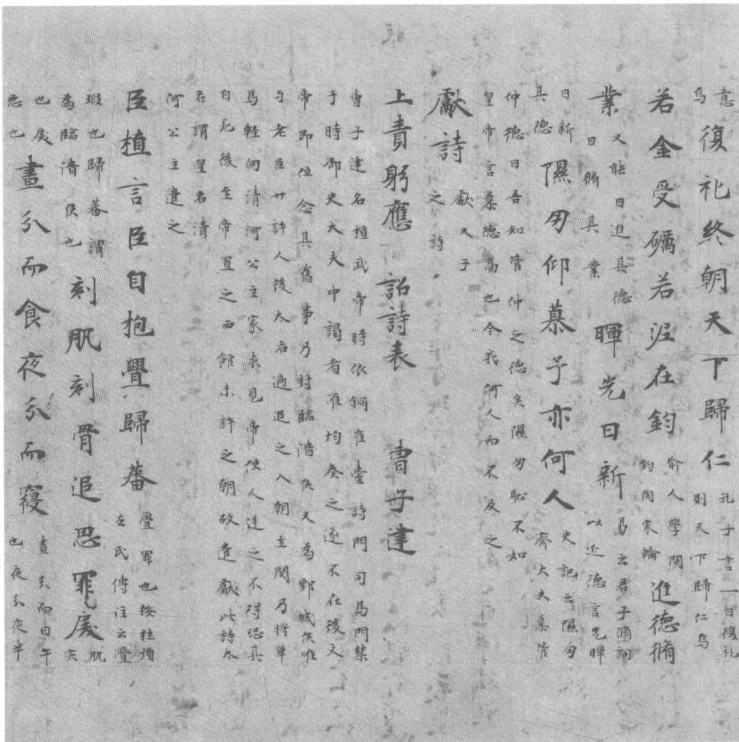 意
烏
復礼終朝天下歸仁
孔子言一日復礼
則天下歸仁烏
若金受礪若泥在鈞
俞人學問
鈞陶家輪
進德脩
業
又能日進其德
日脩其業
暉光日新
易云君子脩詞
以延德言光暉
日新
其德
隰朋仰慕予亦何人
史記云隰朋
齊大夫慕管
仲德曰吾如管仲之德矣隰朋恥不如
皇帝言慕德高也今我何人而不及之
獻詩
獻天子
之詩
上責躬應 詔詩表 曹子建
曹子建名植武帝時依銅雀臺詩門司馬門禁
于時御史大夫中謁者灌均奏之遂不在後文
帝即位念其舊事乃封臨淄侯又為鄄城侯唯
与老臣廿許人後太后追之入朝至闕乃将單
馬輕向清河公主家求見帝使人逆之不得恐其
自死後至帝置之西館未許之朝故遣獻此詩太
后謂皇后清
河公主遣之
臣植言臣自抱舋歸蕃
舋罪也按杜預
左氏傳注云舋
瑕也歸蕃謂
為臨淄侯也
刻肌刻骨追思罪戾
肌
也戾
悪也
晝分而食夜分而寑
晝分而日午
也夜分夜半